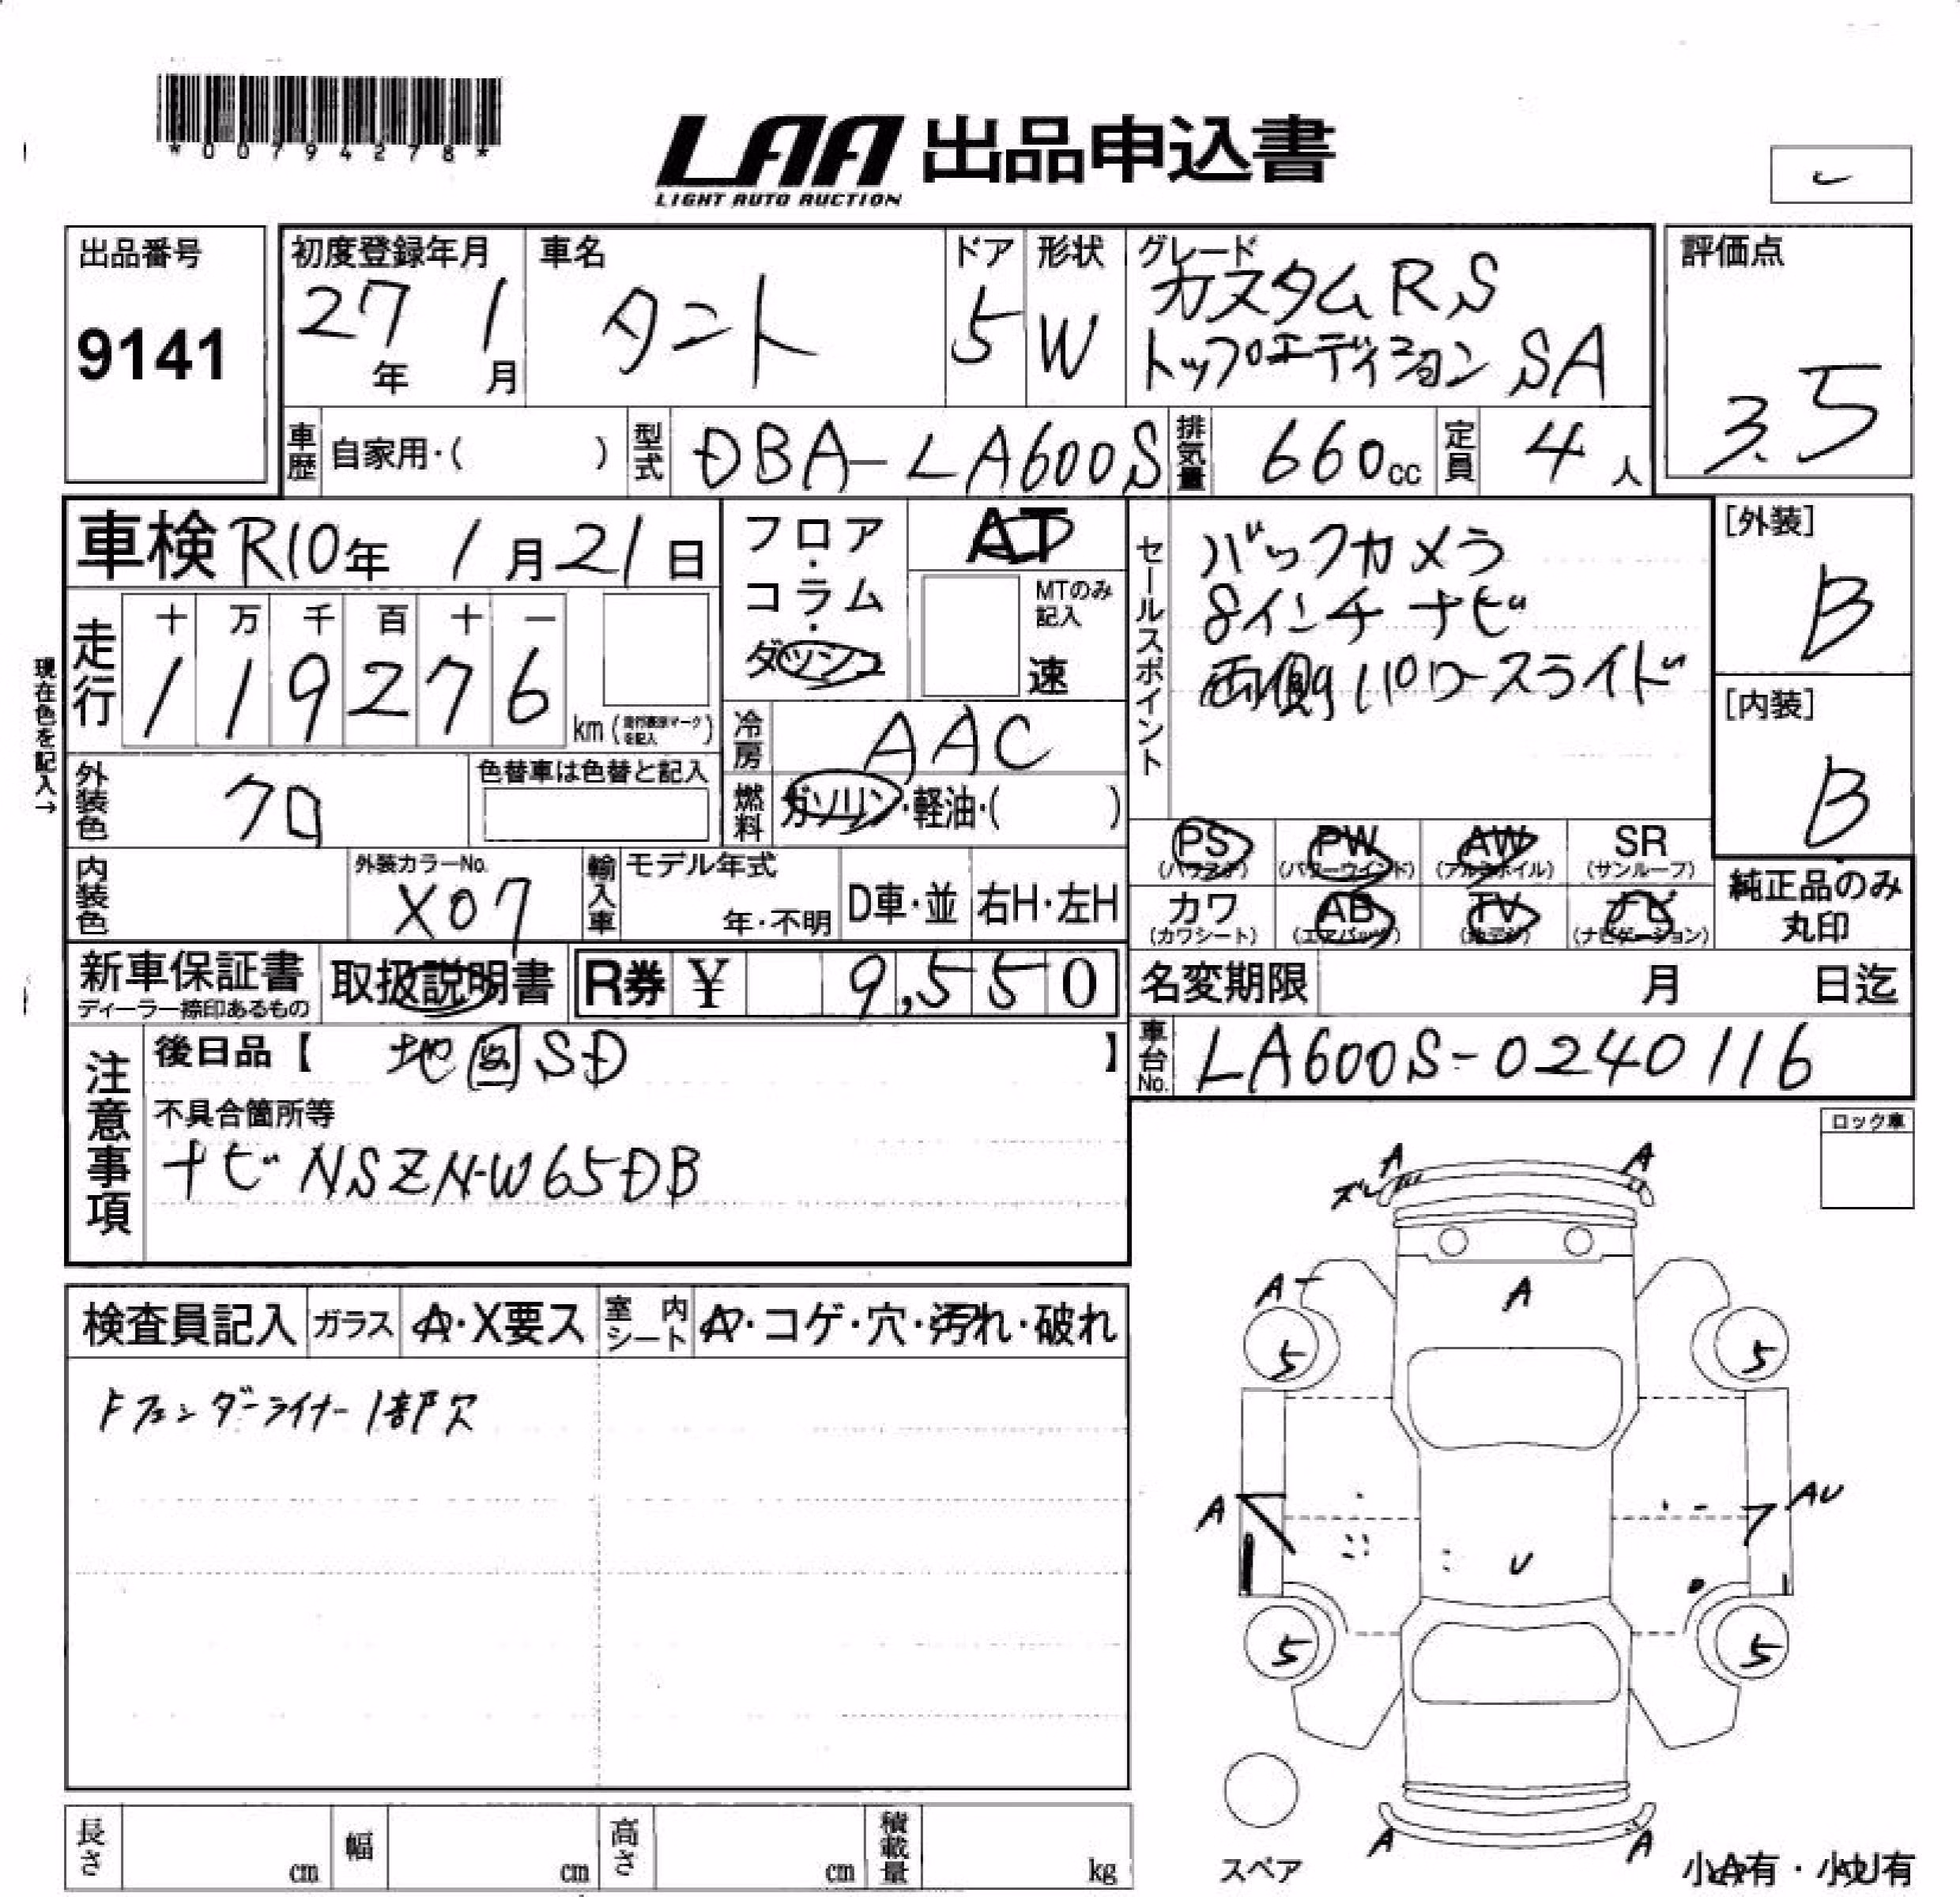 *00794278*
LAA 出品申込書
LIGHT AUTO AUCTION
出品番号
9141
初度登録年月
27年 1月
車名
タント
ドア
5
形状
W
グレード
カスタムRS
トップエディションSA
評価点
3.5
車歴
自家用・( )
型式
DBA-LA600S
排気量
660cc
定員
4人
車検 R10年 1月21日
フロア・
コラム・
ダッシュ
AT
MTのみ
記入
速
セールスポイント
バックカメラ
8インチナビ
両側パワースライド
[外装]
B
[内装]
B
現在色を記入→
走行
十 万 千 百 十 一
1 1 9 2 7 6
km(走行表示マークを記入)
冷房
AAC
外装色
クロ
色替車は色替と記入
燃料
ガソリン・軽油・( )
内装色
外装カラーNo.
X07
輸入車
モデル年式
年・不明
D車・並
右H・左H
PS
(パワステ)
PW
(パワーウインド)
AW
(アルミホイル)
SR
(サンルーフ)
カワ
(カワシート)
AB
(エアバック)
TV
(地デジ)
ナビ
(ナビゲーション)
純正品のみ
丸印
新車保証書
ディーラー捺印あるもの
取扱説明書
R券 ¥ 9,550
名変期限 月 日迄
注意事項
後日品【 地図SD 】
不具合箇所等
ナビ NSZN-W65DB
車台No.
LA600S-0240116
ロック車
検査員記入
ガラス
A・X要ス
室内シート
A・コゲ・穴・汚れ・破れ
Fフェンダーライナー1部欠
A
A
ズレ
A
A
5
5
A
AU
U
5
5
A
A
スペア
小A有・小U有
長さ cm
幅 cm
高さ cm
積載量 kg